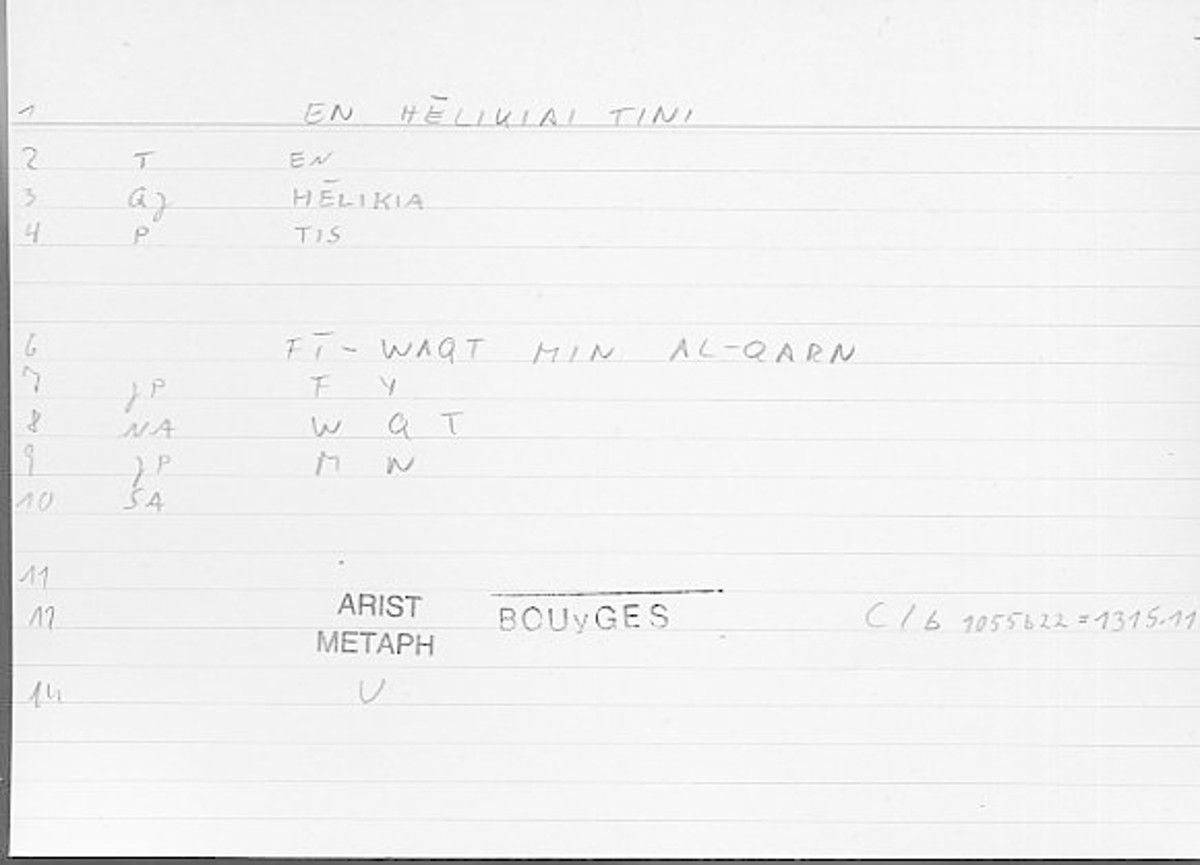 1 EN HĒLIKIAI TINI
2 T EN
3 QJ HĒLIKIA
4 P TIS
6 FĪ- WAQT MIN AL-QARN
7 JP F Y
8 NA W Q T
9 JP M N
10 SA
11
12 ARIST METAPH BOUyGES C/b 1055b22=1315.11
14 U